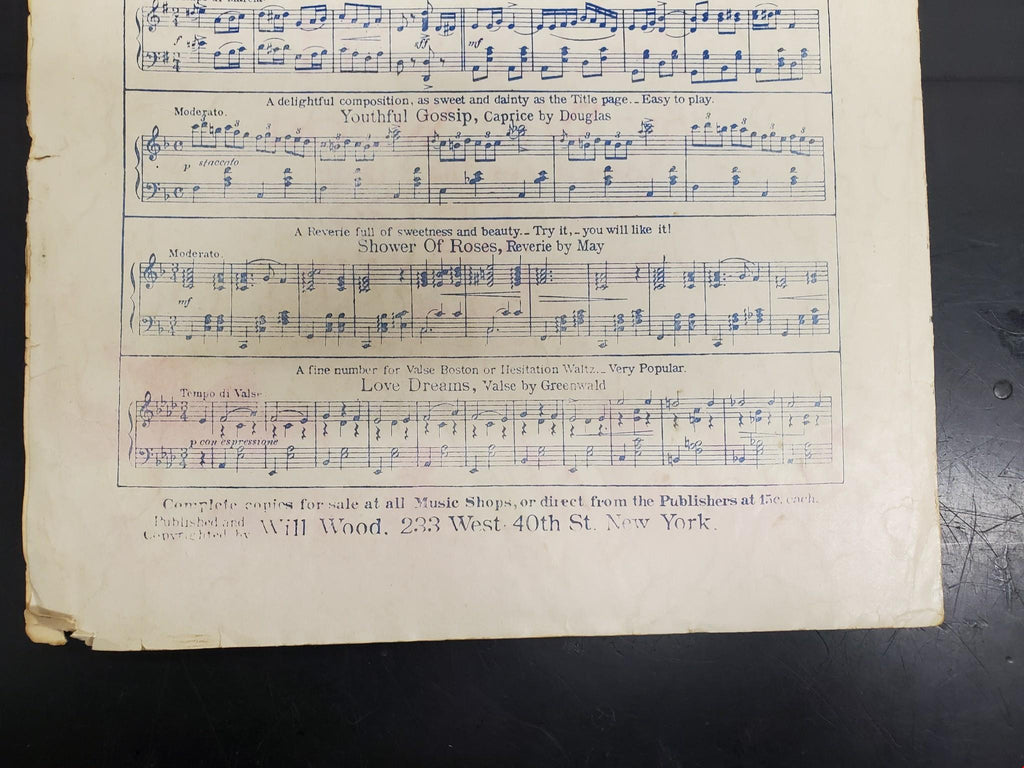 f
sff
mf
A delightful composition, as sweet and dainty as the Title page._ Easy to play.
Moderato.
Youthful Gossip, Caprice by Douglas
3 3 3 3 3 3 3 3 3 3
p staccato
A Reverie full of sweetness and beauty._ Try it,_ you will like it!
Moderato.
Shower Of Roses, Reverie by May
mf
A fine number for Valse Boston or Hesitation Waltz._ Very Popular.
Tempo di Valse
Love Dreams, Valse by Greenwald
p con espressione
Complete copies for sale at all Music Shops, or direct from the Publishers at 15c. each.
Published and
Copyrighted by Will Wood, 233 West 40th St. New York.